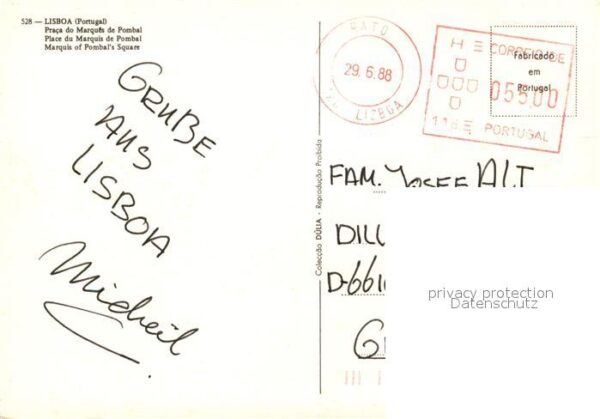 528 — LISBOA (Portugal)
Praça do Marquês de Pombal
Place du Marquis de Pombal
Marquis of Pombal's Square
GRUBE
AUS
LISBOA
Colecção DÚLIA - Reprodução Proibida
29.6.88
LISBOA
CORREIO DE
055,00
PORTUGAL
Fabricado
em
Portugal
FAM. JOSEF ALT
DILL
D-661
G
privacy protection
Datenschutz